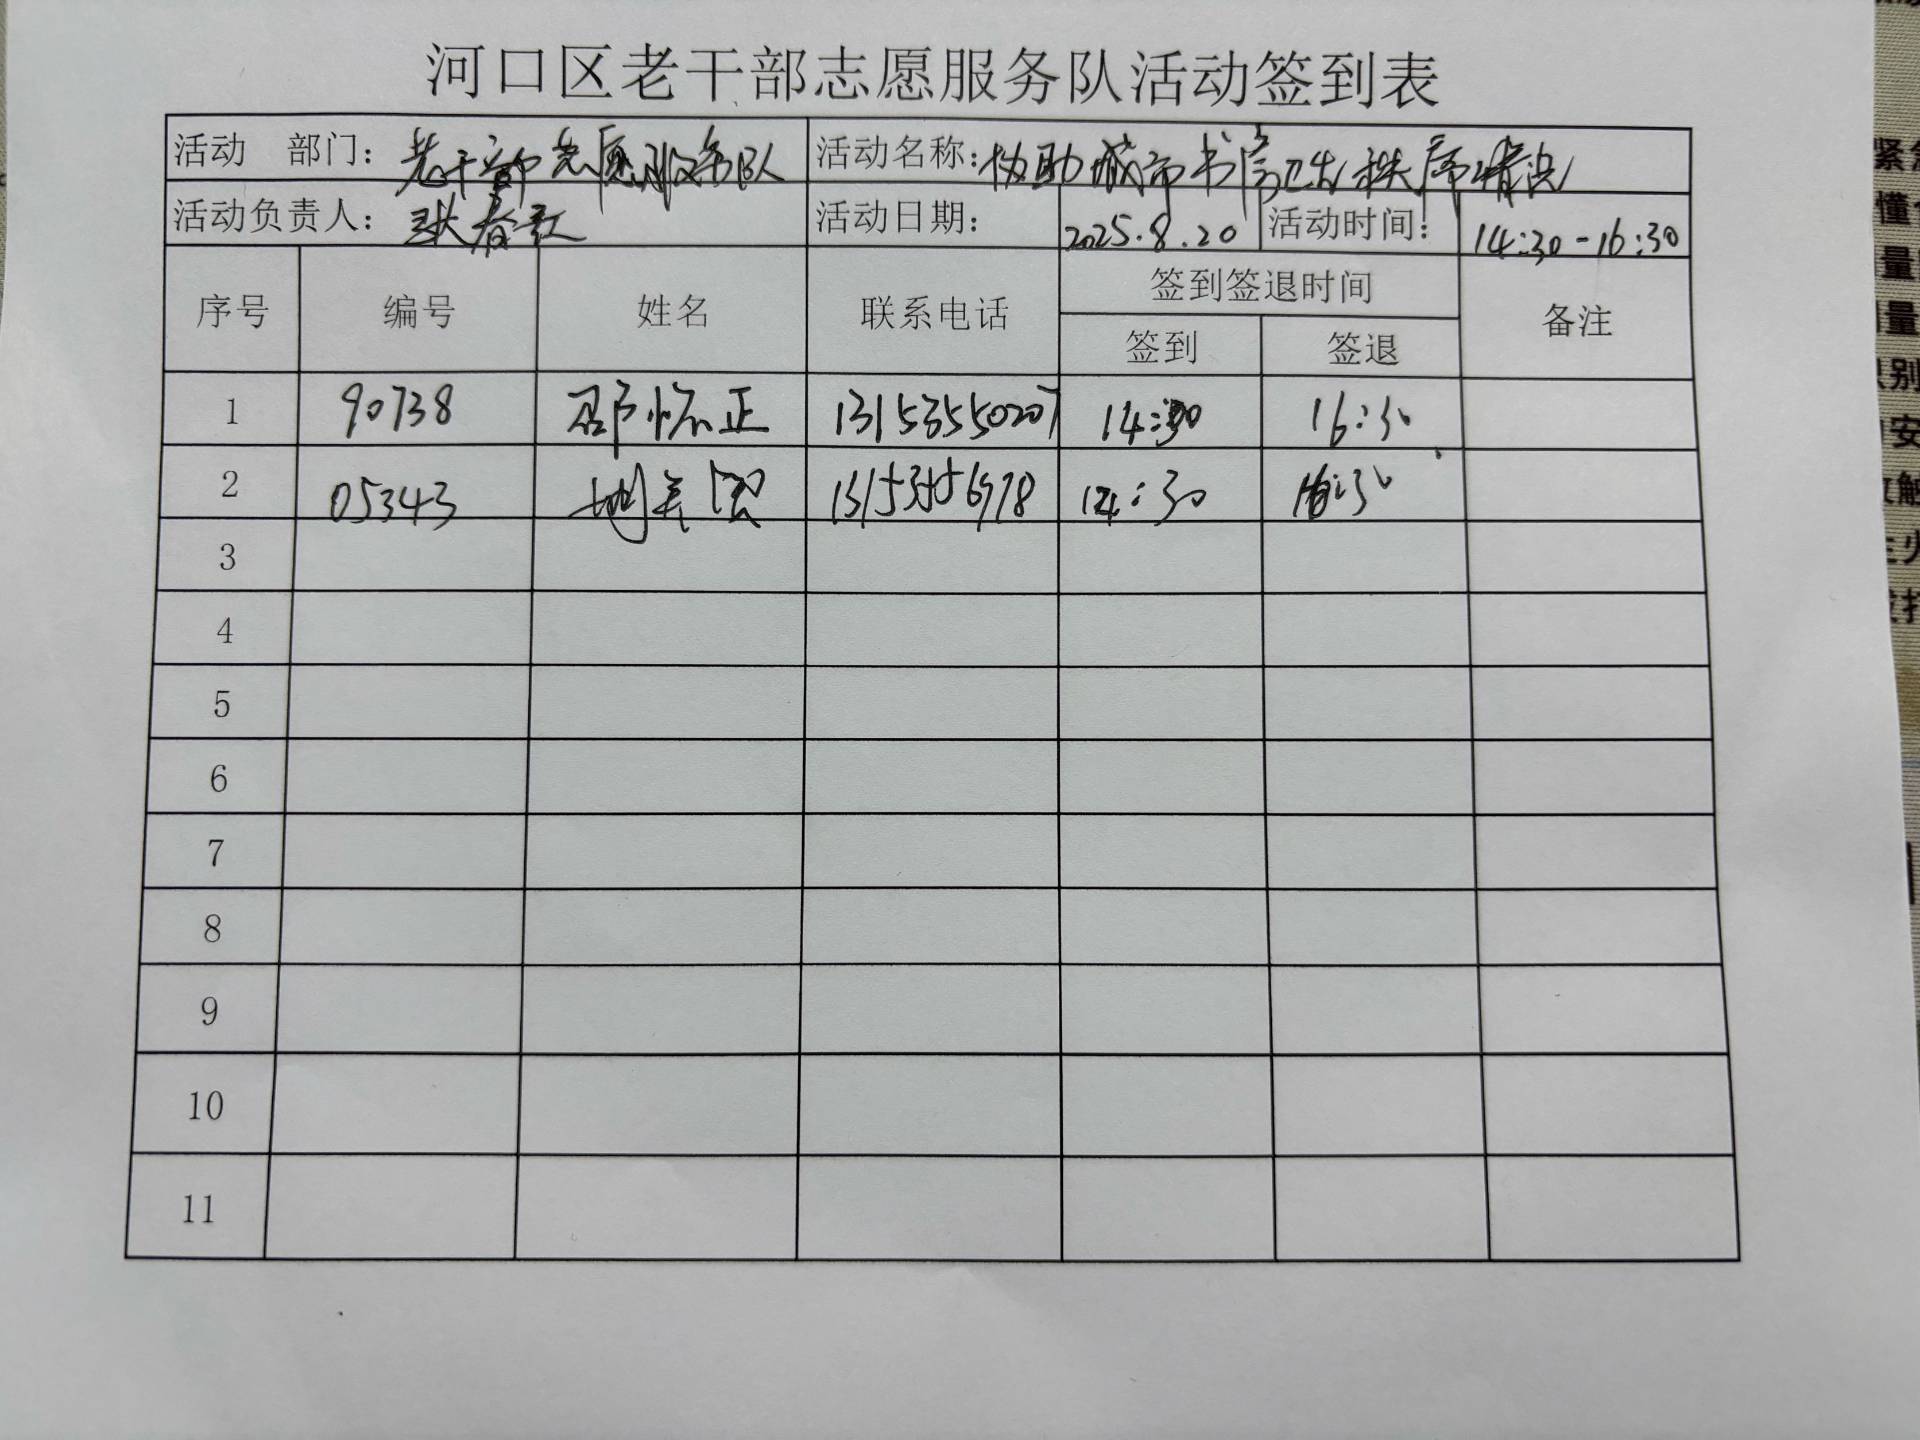 河口区老干部志愿服务队活动签到表
活动 部门：老干部志愿服务队 活动名称：协助城市书房卫生秩序清洁
活动负责人： 活动日期： 2025.8.20 活动时间： 14:30-16:30
序号 编号 姓名 联系电话 签到签退时间 备注
签到 签退
1 90738 正 13153550207 14:30 16:30
2 05343 14:30 16:30
3
4
5
6
7
8
9
10
11